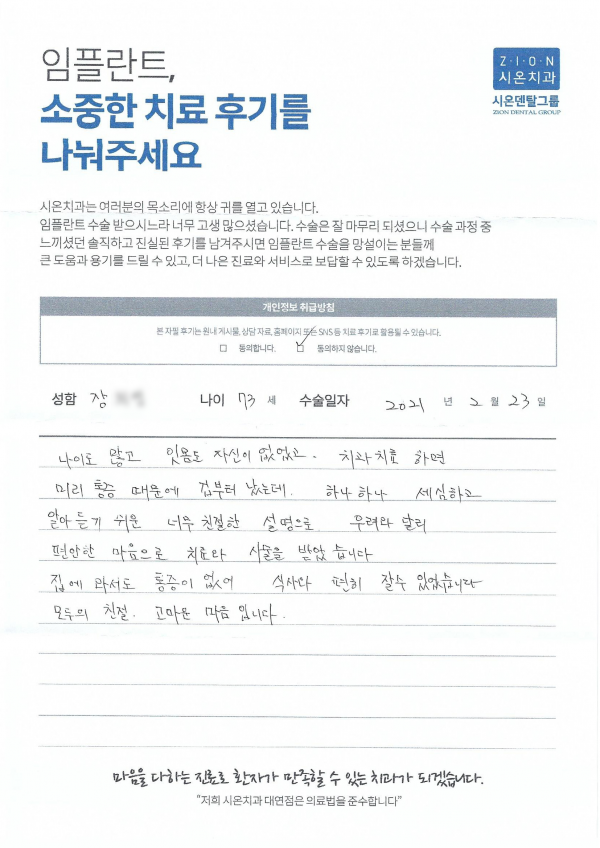 임플란트,
소중한 치료 후기를
나눠주세요
Z·I·O·N
시온치과
시온덴탈그룹
ZION DENTAL GROUP
시온치과는 여러분의 목소리에 항상 귀를 열고 있습니다.
임플란트 수술 받으시느라 너무 고생 많으셨습니다. 수술은 잘 마무리 되셨으니 수술 과정 중
느끼셨던 솔직하고 진실된 후기를 남겨주시면 임플란트 수술을 망설이는 분들께
큰 도움과 용기를 드릴 수 있고, 더 나은 진료와 서비스로 보답할 수 있도록 하겠습니다.
개인정보 취급방침
본 자필 후기는 원내 게시물, 상담 자료, 홈페이지 또는 SNS 등 치료 후기로 활용될 수 있습니다.
☐ 동의합니다. ☑ 동의하지 않습니다.
성함 장 나이 73 세 수술일자 2021 년 2 월 23 일
나이도 많고 잇몸도 자신이 없었고. 치과치료 하면
미리 통증 때문에 겁부터 났는데. 하나하나 세심하고
알아듣기 쉬운 너무 친절한 설명으로 우려와 달리
편안한 마음으로 치료와 시술을 받았습니다
집에 와서도 통증이 없어 식사와 편히 잘수 있었습니다
모두의 친절. 고마운 마음 입니다.
마음을 다하는 진료로 환자가 만족할 수 있는 치과가 되겠습니다.
"저희 시온치과 대연점은 의료법을 준수합니다"